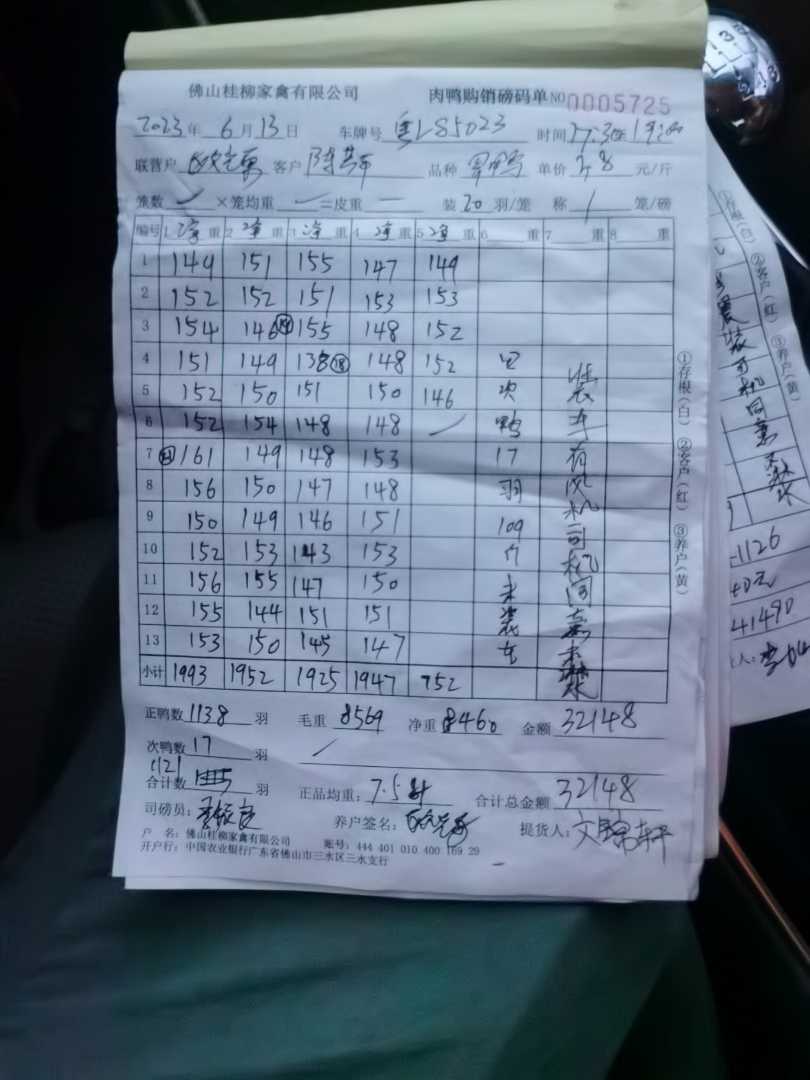 佛山桂柳家禽有限公司 肉鸭购销磅码单 NO 0005725
2023年 6月13日 车牌号 粤L85023 时间 17:30至19:00
联营户 客户 品种 单价 3.8 元/斤
笼数 ✓ ×笼均重 ✓ =皮重 — 装 20 羽/笼 称 1 笼/磅
编号 1 净重 2 净重 3 净重 4 净重 5 净重 6 重 7 重 8 重
1 149 151 155 147 149
2 152 152 151 153 153
3 154 146 155 148 152
4 151 149 138 ⑱ 148 152 另
5 152 150 151 150 146 次 装
6 152 154 148 148 ✓ 鸭 车
7 161 149 148 153 17 有
8 156 150 147 148 羽 风
9 150 149 146 151 109 机
10 152 153 143 153 斤 司机
11 156 155 147 150 未 同
12 155 144 151 151 装 意
13 153 150 145 147 车
小计 1993 1952 1925 1947 752
①存根(白) ②客户(红) ③养户(黄)
正鸭数 1138 羽 毛重 8569 净重 8460 金额 32148
次鸭数 17 羽
1121
合计数 羽 正品均重: 7.5斤 合计总金额 32148
司磅员: 养户签名: 提货人:
户 名: 佛山桂柳家禽有限公司 账号: 444 401 010 400 169 29
开户行: 中国农业银行广东省佛山市三水区三水支行
①存根(白) ②客户(红) ③养户(黄)
1126
41490